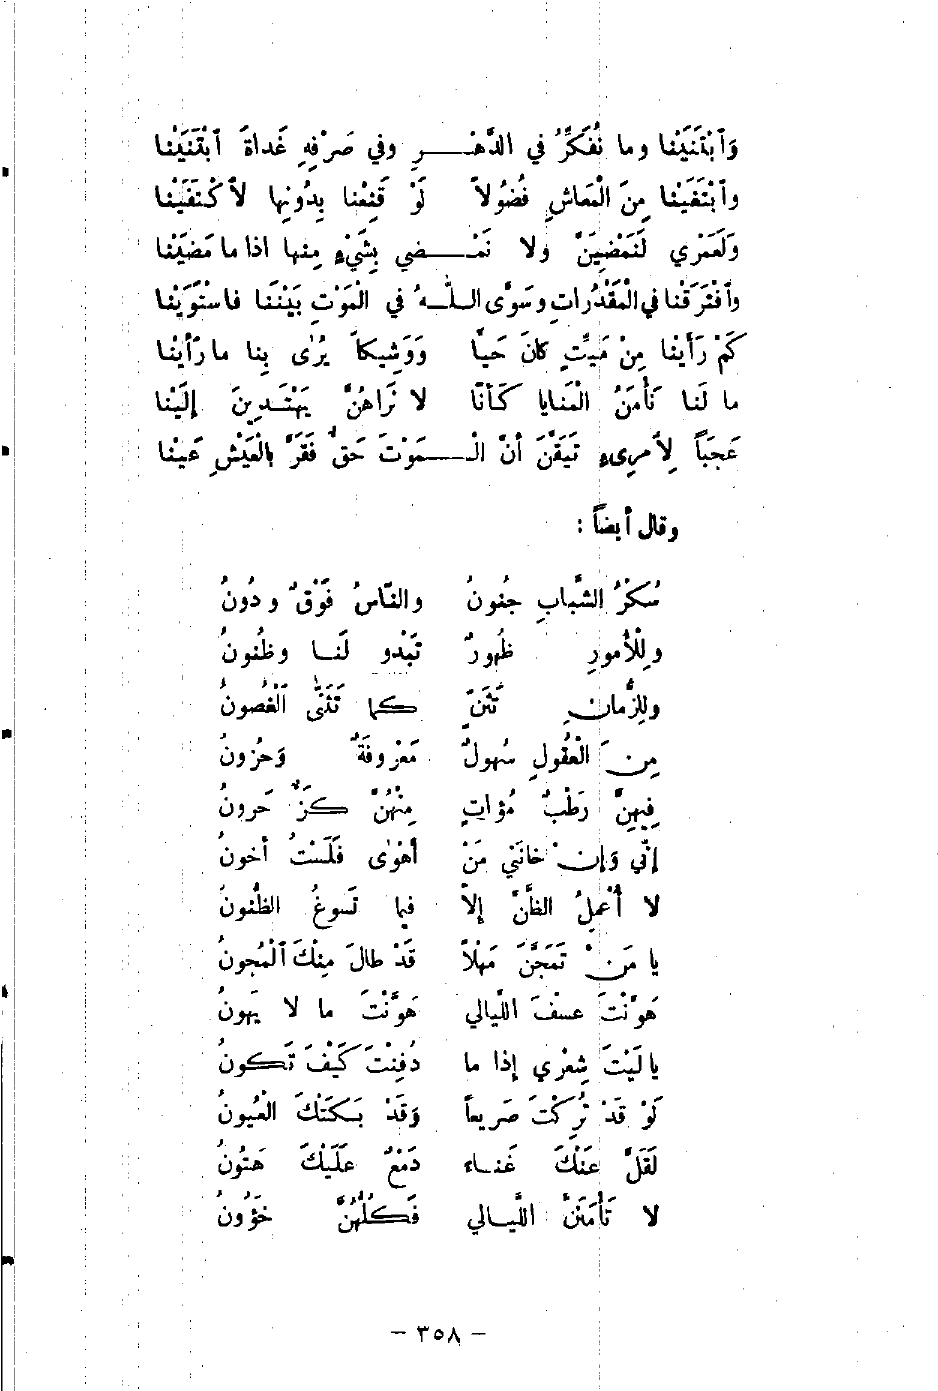 وَٱبْتَنَيْنا وما نُفَكِّرُ في الدَّهْـــرِ وفي صَرْفِهِ غَداةَ ٱبْتَنَيْنا
وٱبْتَغَيْنا مِنَ الْمَعاشِ فُضُولاً لَوْ قَنِعْنا بِدُونِها لَاكْتَفَيْنا
ولَعَمْري لَنَمْضِيَنَّ ولا نَمْـــضي بِشَيْءٍ مِنها اذا ما مَضَيْنا
وٱفْتَرَقْنا في الْمَقْدُراتِ وسَوَّى اللّـهُ في الْمَوْتِ بَيْنَنا فاسْتَوَيْنا
كَمْ رَأَيْنا مِنْ مَيِّتٍ كانَ حَيّاً وَوَشِيكاً يُرٰى بِنا ما رَأَيْنا
ما لَنا نَأْمَنُ الْمَنايا كَأَنّا لا نَراهُنَّ يَهْتَـدِينَ إلَيْنا
عَجَباً لِأَمرِىءٍ تَيَقَّنَ أنَّ الْـــمَوْتَ حَقٌّ فَقَرَّ بالْعَيْشِ عَيْنا
وقال أيضاً :
سُكْرُ الشَّبابِ جُنونُ والنّاسُ فَوْقٌ ودُونُ
ولِلْأُمورِ ظُهورٌ تَبْدو لَنـا وظُنونُ
ولِلزَّمانِ تَثَنٍّ كما تَثَنَّى ٱلْغُصونُ
مِنَ الْعُقولِ سُهولٌ مَعْروفَةٌ وَحُزونُ
فِيهِنَّ رَطْبٌ مُؤاتٍ مِنْهُنَّ كَزٌّ حَرونُ
إنّي وَإنْ خانَني مَنْ أهْوٰى فَلَسْتُ أخونُ
لا أُعْمِلُ الظَّنَّ إلاّ فيما تَسوغُ الظُّنونُ
يا مَنْ تَمَجَّنَ مَهْلاً قَدْ طالَ مِنْكَ ٱلْمُجونُ
هَوَّنْتَ عسْفَ اللَّيالي هَوَّنْتَ ما لا يَهونُ
يا لَيْتَ شِعْري إذا ما دُفِنْتَ كَيْفَ تَكونُ
لَوْ قَدْ تُرِكْتَ صَريعاً وَقَدْ بَـكَتْكَ الْعُيونُ
لَقَلَّ عَنْكَ غَنـاء دَمْعٌ عَلَيْكَ هَتُونُ
لا تَأْمَنَنَّ اللَّيـالي فَـكُلُّهُنَّ خَؤُونُ
– ٣٥٨ –